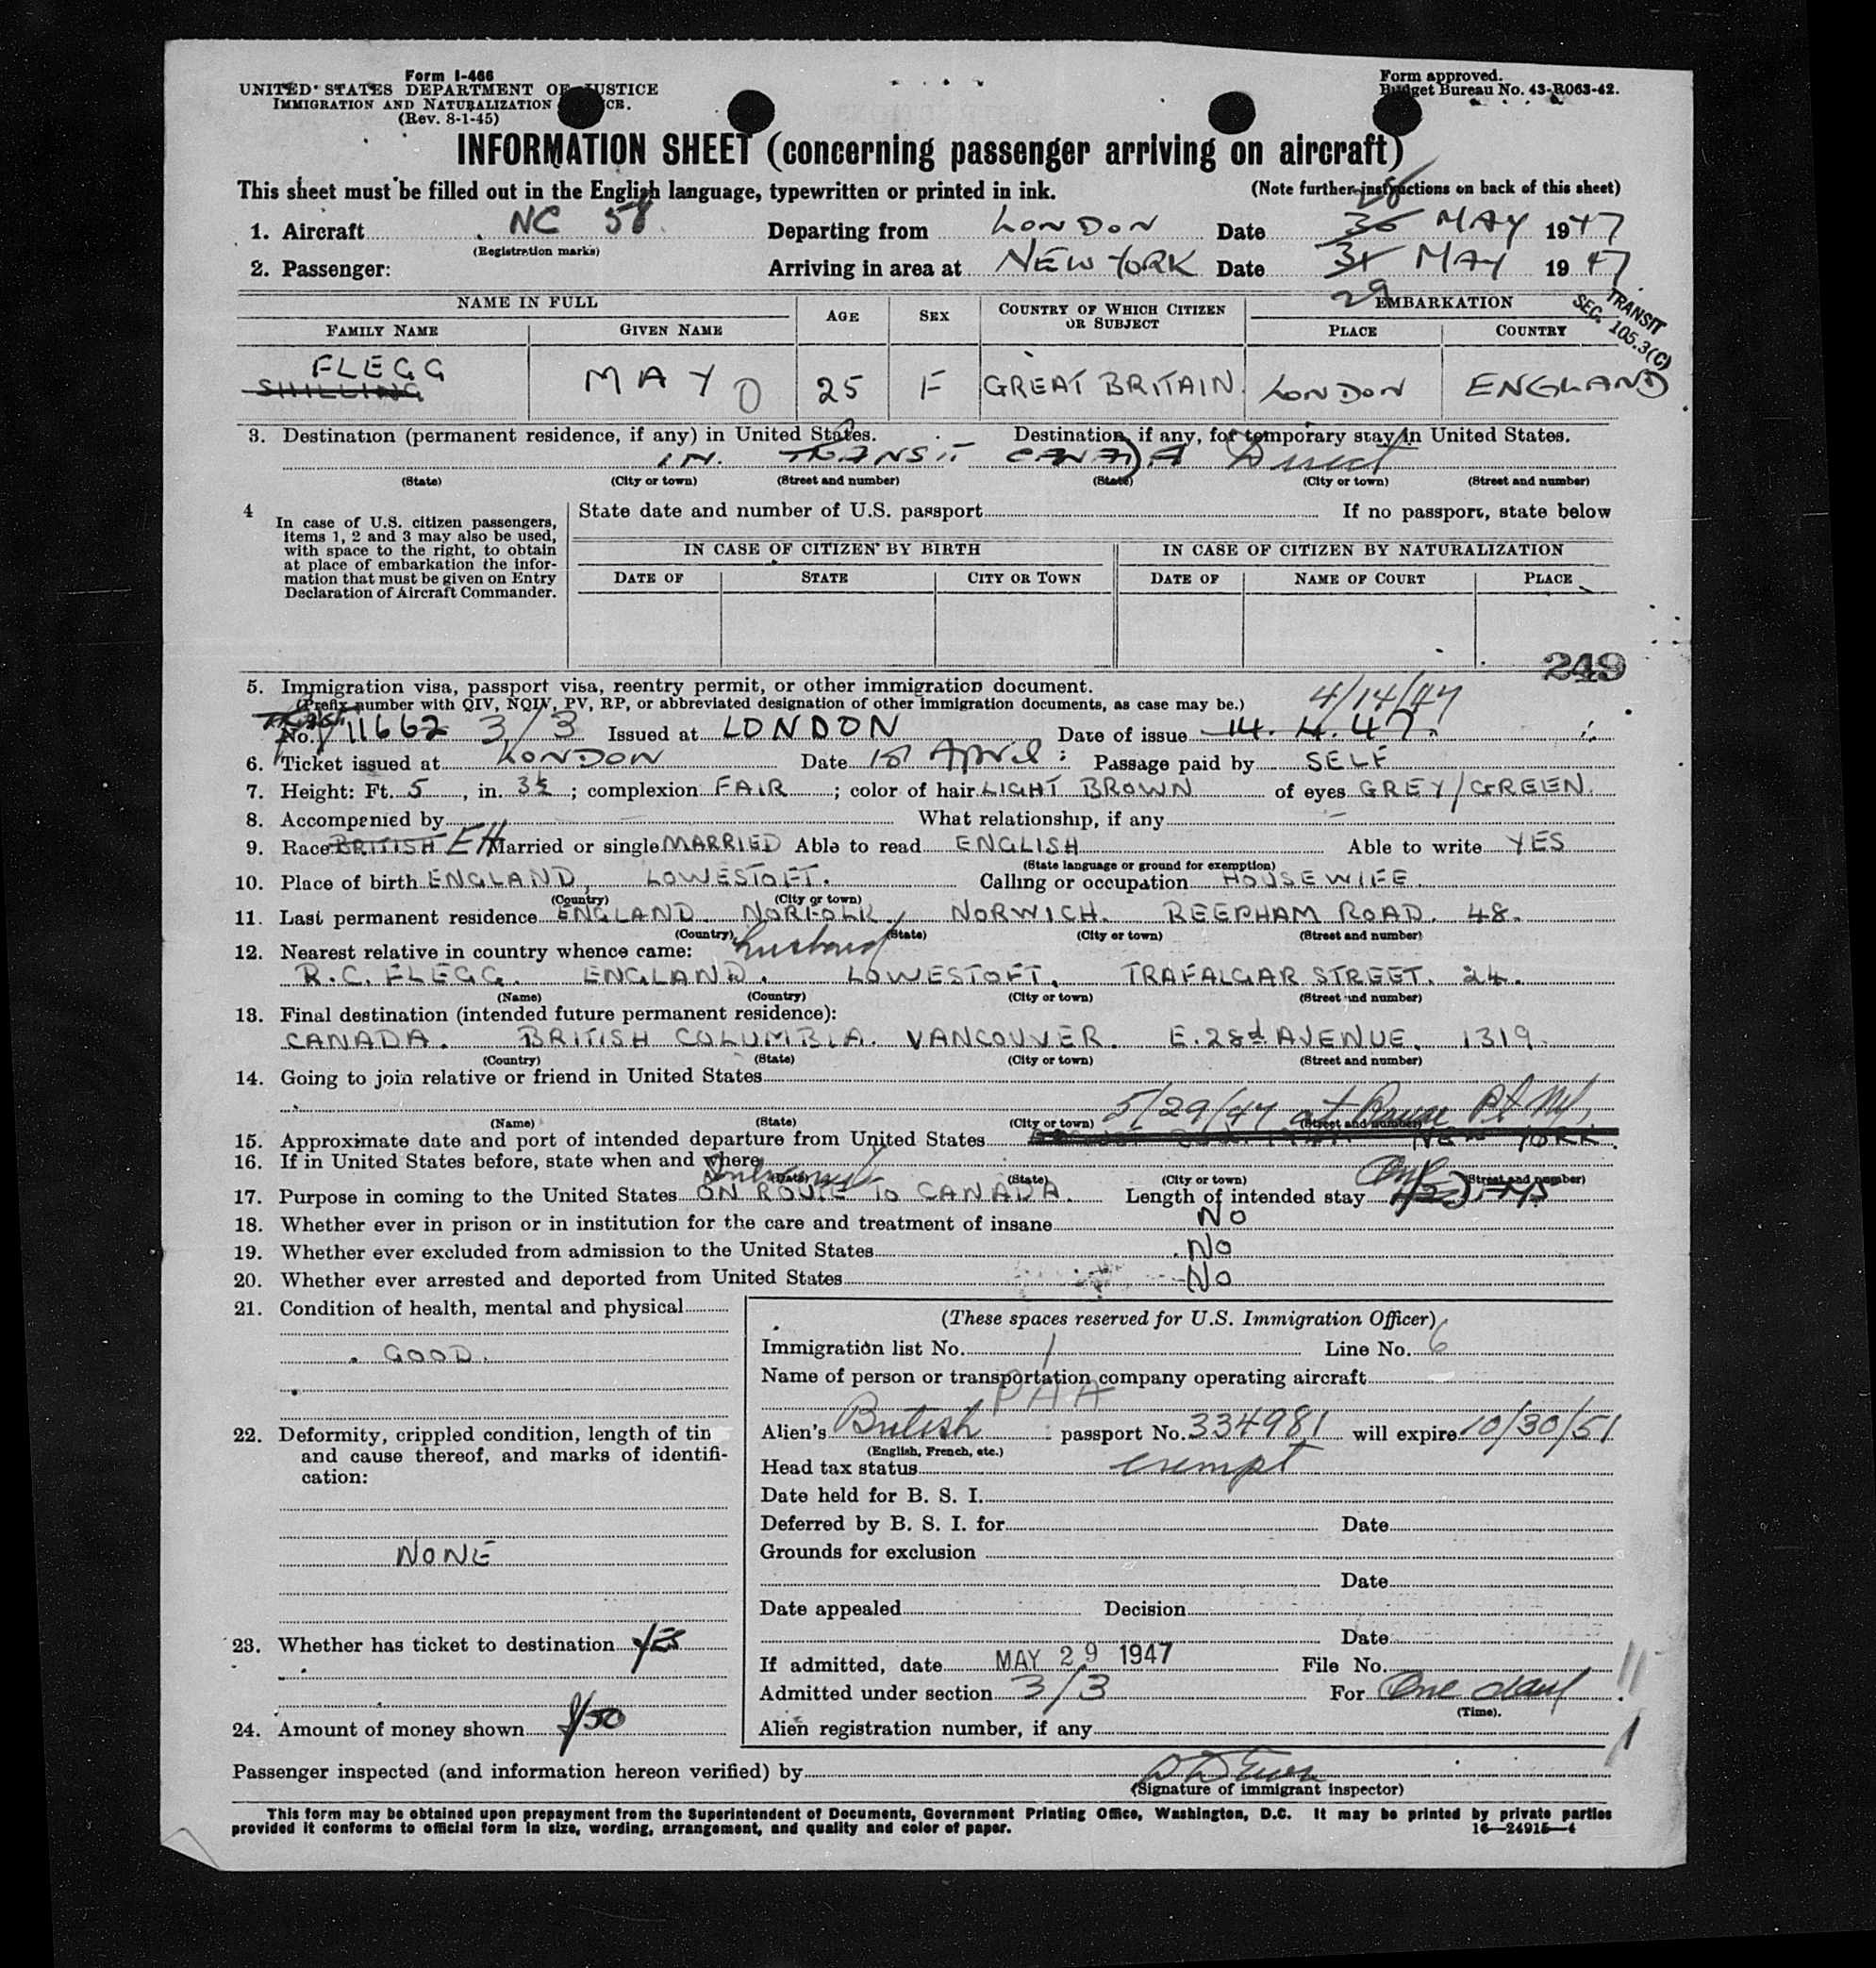 Form I-466
UNITED STATES DEPARTMENT OF JUSTICE
IMMIGRATION AND NATURALIZATION
(Rev. 8-1-45)
Form approved.
Budget Bureau No. 43-R063-42.
INFORMATION SHEET (concerning passenger arriving on aircraft)
This sheet must be filled out in the English language, typewritten or printed in ink. (Note further instructions on back of this sheet)
28
1. Aircraft NC 58 Departing from LONDON Date 30 MAY 1947
(Registration marks)
2. Passenger: Arriving in area at NEW YORK Date 31 MAY 1947
29
TRANSIT
SEC. 105.3(C)
NAME IN FULL AGE SEX COUNTRY OF WHICH CITIZEN OR SUBJECT EMBARKATION
FAMILY NAME GIVEN NAME PLACE COUNTRY
FLEGG
SHILLING MAY 0 25 F GREAT BRITAIN. LONDON ENGLAND
3. Destination (permanent residence, if any) in United States. Destination, if any, for temporary stay in United States.
IN TRANSIT CANADA Direct
(State) (City or town) (Street and number) (State) (City or town) (Street and number)
4 In case of U.S. citizen passengers, items 1, 2 and 3 may also be used, with space to the right, to obtain at place of embarkation the information that must be given on Entry Declaration of Aircraft Commander.
State date and number of U.S. passport If no passport, state below
IN CASE OF CITIZEN BY BIRTH IN CASE OF CITIZEN BY NATURALIZATION
DATE OF STATE CITY OR TOWN DATE OF NAME OF COURT PLACE
249
5. Immigration visa, passport visa, reentry permit, or other immigration document.
(Prefix number with QIV, NQIV, PV, RP, or abbreviated designation of other immigration documents, as case may be.) 4/14/47
No. 11662 3/3 Issued at LONDON Date of issue 14. 4. 47.
6. Ticket issued at LONDON Date 1st April Passage paid by SELF
7. Height: Ft. 5, in. 3½; complexion FAIR; color of hair LIGHT BROWN of eyes GREY/GREEN.
8. Accompanied by What relationship, if any
9. Race BRITISH EH Married or single MARRIED Able to read ENGLISH Able to write YES
(State language or ground for exemption)
10. Place of birth ENGLAND, LOWESTOFT. Calling or occupation HOUSEWIFE.
(Country) (City or town)
11. Last permanent residence ENGLAND. NORFOLK. NORWICH. REEPHAM ROAD. 48.
(Country) (State) (City or town) (Street and number)
12. Nearest relative in country whence came: husband
R.C. FLEGG. ENGLAND. LOWESTOFT. TRAFALGAR STREET. 24.
(Name) (Country) (City or town) (Street and number)
13. Final destination (intended future permanent residence):
CANADA. BRITISH COLUMBIA. VANCOUVER. E. 28d AVENUE. 1319.
(Country) (State) (City or town) (Street and number)
14. Going to join relative or friend in United States
5/29/47 at Rouse Pt NY,
(Name) (State) (City or town) (Street and number)
15. Approximate date and port of intended departure from United States NEW YORK.
16. If in United States before, state when and where
(Date) (State) (City or town) (Street and number)
17. Purpose in coming to the United States ON ROUTE TO CANADA. Length of intended stay
18. Whether ever in prison or in institution for the care and treatment of insane NO
19. Whether ever excluded from admission to the United States NO
20. Whether ever arrested and deported from United States NO
21. Condition of health, mental and physical
GOOD.
22. Deformity, crippled condition, length of time
and cause thereof, and marks of identifi-
cation:
NONE
23. Whether has ticket to destination YES
24. Amount of money shown $50
(These spaces reserved for U.S. Immigration Officer)
Immigration list No. 1 Line No. 6
Name of person or transportation company operating aircraft
PAA
Alien's British passport No. 334981 will expire 10/30/51
(English, French, etc.)
Head tax status exempt
Date held for B. S. I.
Deferred by B. S. I. for Date
Grounds for exclusion
Date
Date appealed Decision
Date
If admitted, date MAY 29 1947 File No.
Admitted under section 3/3 For One day
(Time).
Alien registration number, if any
Passenger inspected (and information hereon verified) by
(Signature of immigrant inspector)
This form may be obtained upon prepayment from the Superintendent of Documents, Government Printing Office, Washington, D.C. It may be printed by private parties
provided it conforms to official form in size, wording, arrangement, and quality and color of paper. 16—24915-4